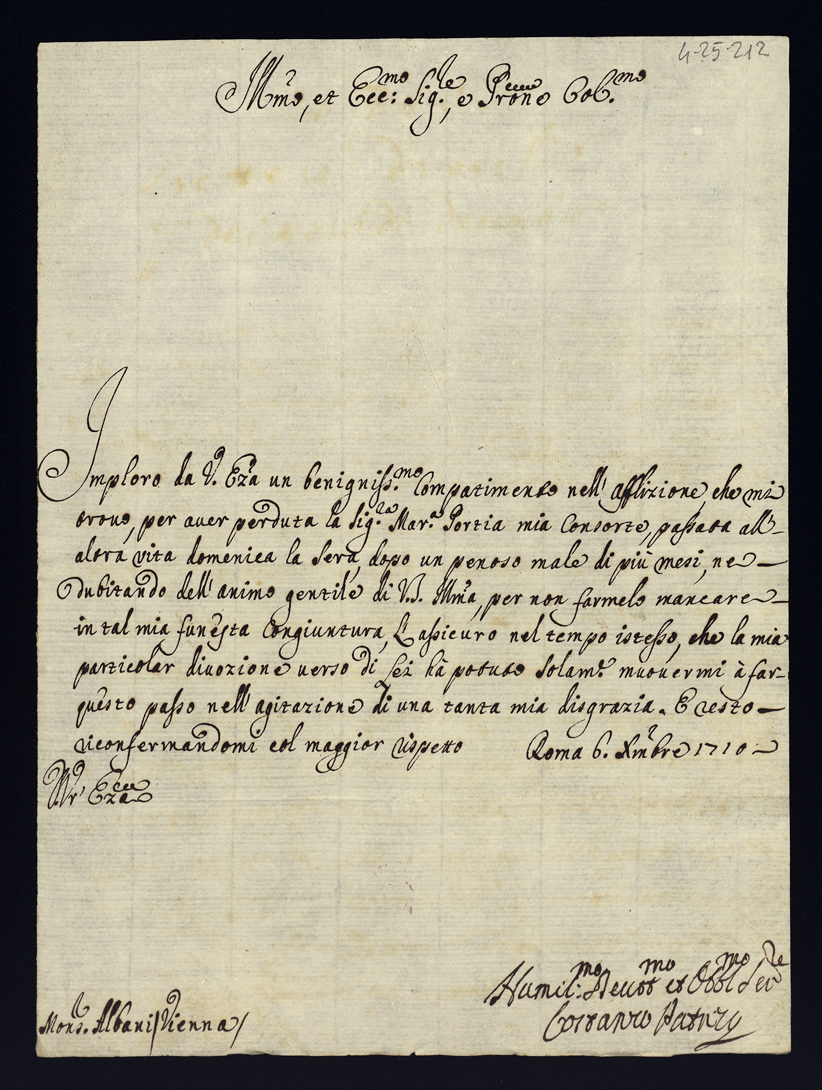 4-25-212
Ill.mo, et Ecc:mo Sig.re, e Prone Col.mo
Imploro da V. Ecz.a un benigniss.mo Compatimento nell' afflizione, che mi
trovo, per aver perduta la Sig.ra Mar.a Portia mia Consorte, passata all'
altra vita domenica la sera, dopo un penoso male di più mesi, ne
dubitando dell' animo gentile di V.S. Ill.ma, per non farmelo mancare
in tal mia funesta Congiuntura, L'assicuro nel tempo istesso, che la mia
particolar divozione verso di Lei hà potuto solam.te muovermi à far
questo passo nell' agitazione di una tanta mia disgrazia. E resto
riconfermandomi col maggior rispetto Roma 6. Xmbre 1710
Ecz.a
Mons.r Albani / Vienna /
Humil.mo Devot.mo et Obbl.mo Ser.re
Costanzo